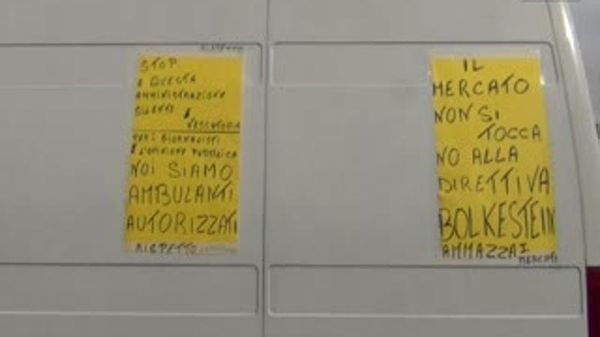 STOP
A QUESTA
AMMINISTRAZIONE
E
VESSATORIA
PER I GIORNALISTI
E L'OPINIONE PUBBLICA
NOI SIAMO
AMBULANTI
AUTORIZZATI
RISPETTO
IL
MERCATO
NON SI
TOCCA
NO ALLA
DIRETTIVA
BOLKESTEIN
AMMAZZA
MERCATI